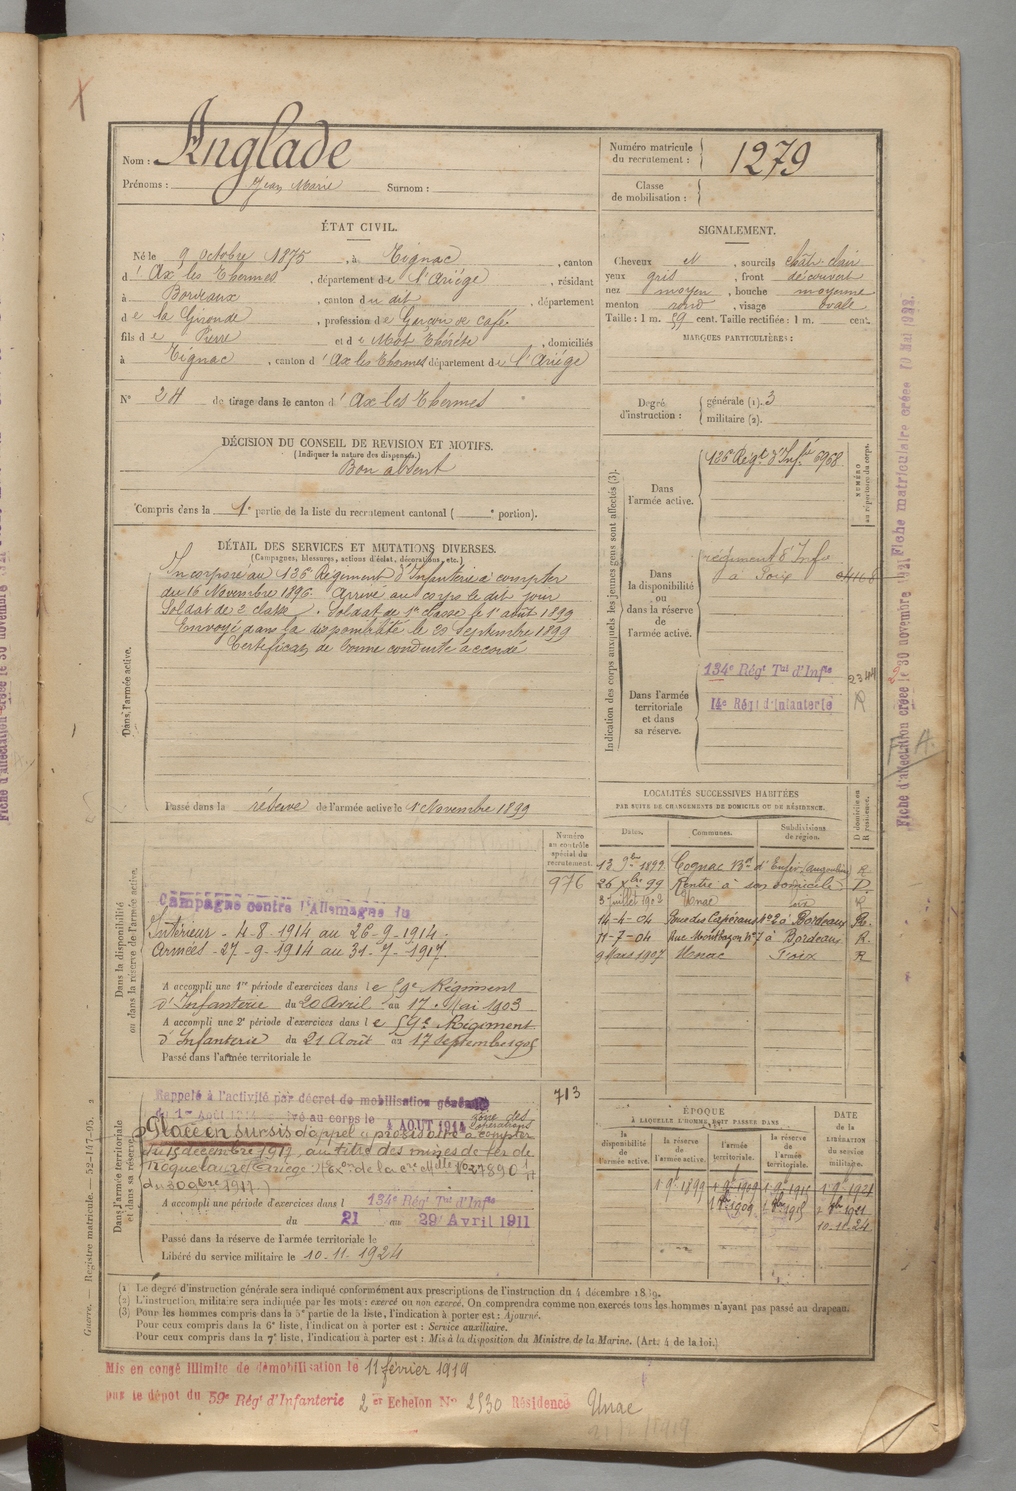 Nom : Anglade
Prénoms : Jean Marie Surnom :
Numéro matricule du recrutement : 1279
Classe de mobilisation :
ÉTAT CIVIL.
Né le 9 octobre 1875, à Tignac, canton
d'Ax les Thermes, département de l'Ariége, résidant
à Bordeaux, canton du dit, département
de la Gironde, profession de Garçon de café.
fils de Pierre et de Mot Thérèse, domiciliés
à Tignac, canton d'Ax les Thermes département de l'Ariége
N° 24 de tirage dans le canton d'Ax les Thermes
SIGNALEMENT.
Cheveux N, sourcils chât. clair
yeux gris, front découvert
nez moyen, bouche moyenne
menton rond, visage ovale
Taille : 1 m. 59 cent. Taille rectifiée : 1 m. cent.
MARQUES PARTICULIÈRES :
Degré d'instruction : générale (1). 3
militaire (2).
DÉCISION DU CONSEIL DE REVISION ET MOTIFS.
(Indiquer la nature des dispenses.)
Bon absent
Compris dans la 1e partie de la liste du recrutement cantonal ( e portion).
DÉTAIL DES SERVICES ET MUTATIONS DIVERSES.
(Campagnes, blessures, actions d'éclat, décorations, etc.)
Dans l'armée active.
Incorporé au 126e Régiment d'Infanterie à compter
du 16 Novembre 1896. Arrivé au corps le dit jour
Soldat de 2e classe. Soldat de 1re classe le 1er août 1899
Envoyé dans la disponibilité le 20 Septembre 1899
Certificat de bonne conduite accordé
Passé dans la réserve de l'armée active le 1 Novembre 1899
Indication des corps auxquels les jeunes gens sont affectés (3).
NUMÉRO au répertoire du corps.
Dans l'armée active.
126 Régt d'Infie 6968
Dans la disponibilité ou dans la réserve de l'armée active.
régiment d'Infie
à Foix
Dans l'armée territoriale et dans sa réserve.
134e Régt Tal d'Infie 2344
14e Régt d'Infanterie R
LOCALITÉS SUCCESSIVES HABITÉES
PAR SUITE DE CHANGEMENTS DE DOMICILE OU DE RÉSIDENCE.
Dates. Communes. Subdivisions de région. D domicile ou R résidence.
13 9bre 1899 Cognac Bd d'Enfer Angoulême R
26 Xbre 99 Rentre à son domicile D
3 juillet 1902 Unac Foix
14-4-04 à Bordeaux R.
11-7-04 Rue Montbazon N° 7 à Bordeaux R.
9 Mars 1907 Unac Foix R
Dans la disponibilité ou dans la réserve de l'armée active.
Numéro au contrôle spécial du recrutement.
976
Campagne contre l'Allemagne du
Intérieur - 4-8-1914 au 26-9-1914.
Armées - 27-9-1914 au 31-7-1917.
A accompli une 1re période d'exercices dans le 59e Régiment
d'Infanterie du 20 Avril au 17 Mai 1903
A accompli une 2e période d'exercices dans le 59e Régiment
d'Infanterie du 21 Août au 17 Septembre 1905
Passé dans l'armée territoriale le
Dans l'armée territoriale et dans sa réserve.
713
Rappelé à l'activité par décret de mobilisation générale
du 1er Août 1914 au corps le 4 AOUT 1914 zone des opérations
Placé en sursis d'appel provisoire à compter
du 15 décembre 1917, au titre des mines de fer de
Roquelaure (Ariège)
du 30 9bre 1917.)
A accompli une période d'exercices dans l 134e Régt Tal d'Infie
du 21 au 29 Avril 1911
Passé dans la réserve de l'armée territoriale le
Libéré du service militaire le 10.11.1924
ÉPOQUE
À LAQUELLE L'HOMME DOIT PASSER DANS
la disponibilité de l'armée active. la réserve de l'armée active. l'armée territoriale. la réserve de l'armée territoriale.
DATE DE LA LIBÉRATION du service militaire.
1 9 1899 1 9 1909 1 9 1915 1 9 1921
10.11.24
(1) Le degré d'instruction générale sera indiqué conformément aux prescriptions de l'instruction du 4 décembre 1889.
(2) L'instruction militaire sera indiquée par les mots : exercé ou non exercé. On comprendra comme non exercés tous les hommes n'ayant pas passé au drapeau.
(3) Pour les hommes compris dans la 5e partie de la liste, l'indication à porter est : Ajourné.
Pour ceux compris dans la 6e liste, l'indication à porter est : Service auxiliaire.
Pour ceux compris dans la 7e liste, l'indication à porter est : Mis à la disposition du Ministre de la Marine. (Art. 4 de la loi.)
Mis en congé illimité de démobilisation le 11 février 1919
par le dépôt du 59e Régt d'Infanterie 2 er Echelon N° 2530 Résidence Unac
Guerre. — Registre matricule. — 52-147-95.
Fiche d'affectation créée le 30 novembre 1921 Fiche matriculaire créée 10 Mai 1922.
F. A.